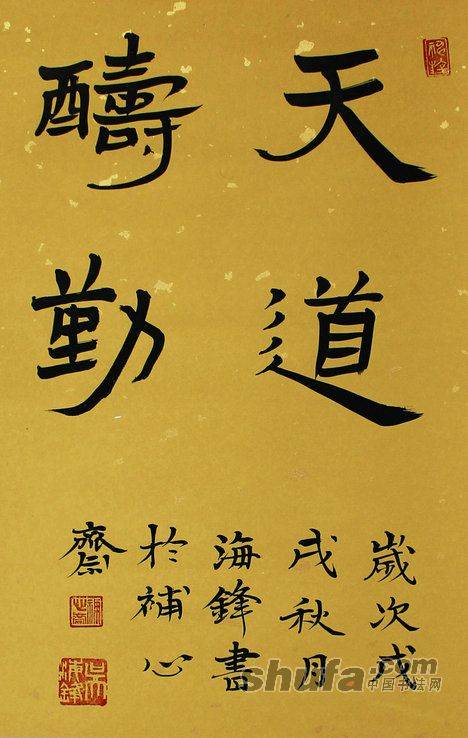 天道
醻勤
歲次戊
戌秋月
海鋒書
於補心
齋
吳海鋒
shufa.com
中国书法网